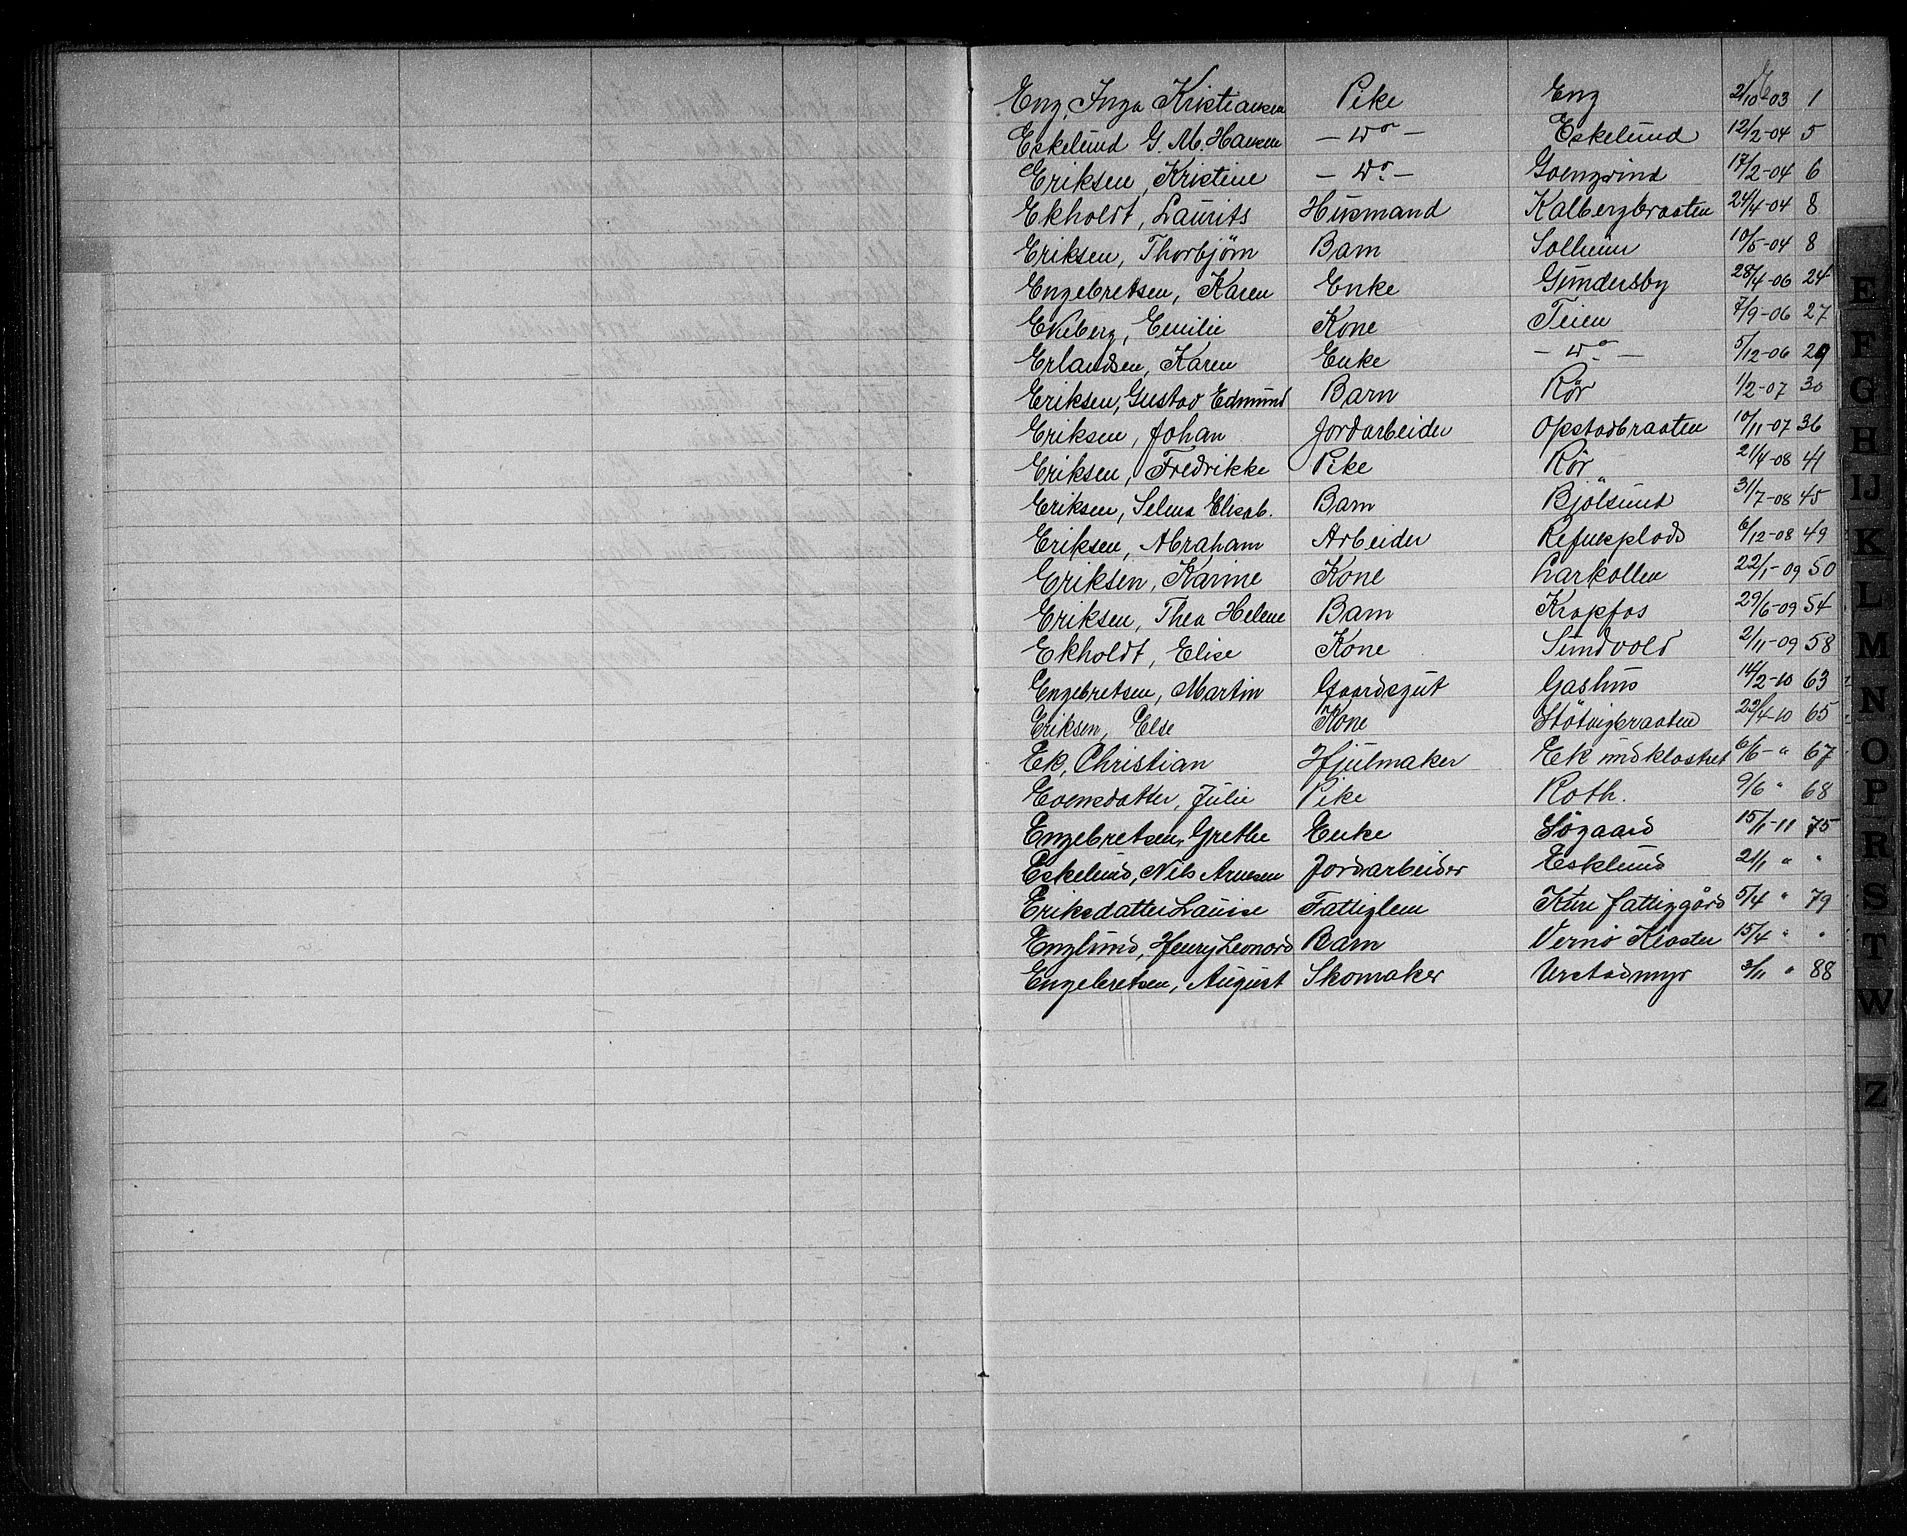 Eng, Inga Kristiansen Pike Eng 2/10-03 1
Eskelund G. M. Hansen — do — Eskelund 12/2-04 5
Eriksen, Kristine — do — 17/2-04 6
Ekholdt, Laurits Husmand Kalbergbraaten 24/4-04 8
Eriksen, Thorbjørn Barn Solheim 10/5-04 8
Engebretsen, Karen Enke Gundersby 28/4-06 24
Ekeberg, Emilie Kone Teien 7/9-06 27
Erlandsen, Karen Enke — do — 5/12-06 29
Eriksen, Gustav Edmund Barn Rør 1/2-07 30
Eriksen, Johan Jordarbeider Opstadbraaten 10/11-07 36
Eriksen, Fredrikke Pike Rør 21/4-08 41
Eriksen, Selma Elisab. Barn Bjølsund 31/7-08 45
Eriksen, Abraham Arbeider 6/12-08 49
Eriksen, Karine Kone Larkollen 22/1-09 50
Eriksen, Thea Helene Barn Kropfos 29/6-09 54
Ekholdt, Elise Kone Sundvold 2/11-09 58
Engebretsen, Martin Gaardsgut Gashus 14/2-10 63
Eriksen, Else Kone Støtvigbraaten 22/4-10 65
Ek, Christian Hjulmaker Ek undklostret 6/6- " 67
Evensdatter, Julie Pike Roth. 9/6 " 68
Engebretsen, Grethe Enke Løgaard 15/1-11 75
Eskelund, Nils Arnesen Jordarbeider Esklund 21/1 " "
Eriksdatter Lauise Fattiglem Kure fattiggård 5/4 " 79
Englund, Henry Leonard Barn Vernø Kloster 15/4 " "
Engebretsen, August Skomaker Urstadmyr 3/11 " 88
E
F
G
H
IJ
K
L
M
N
O
P
R
S
T
W
Z